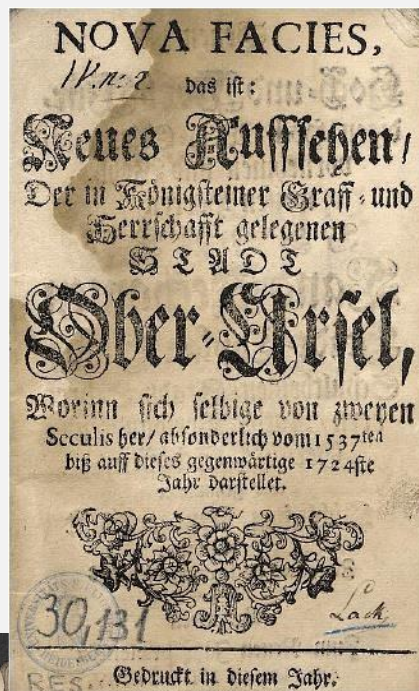 NOVA FACIES,
das ist:
Neues Auffsehen/
Der in Königsteiner Graff- und
Herrschafft gelegenen
STADT
Ober-Ursel,
Worinn sich selbige von zweyen
Seculis her/ absonderlich vom 1537ten
biß auff dieses gegenwärtige 1724ste
Jahr darstellet.
30,131
Lack
Gedruckt in diesem Jahr.
RES.